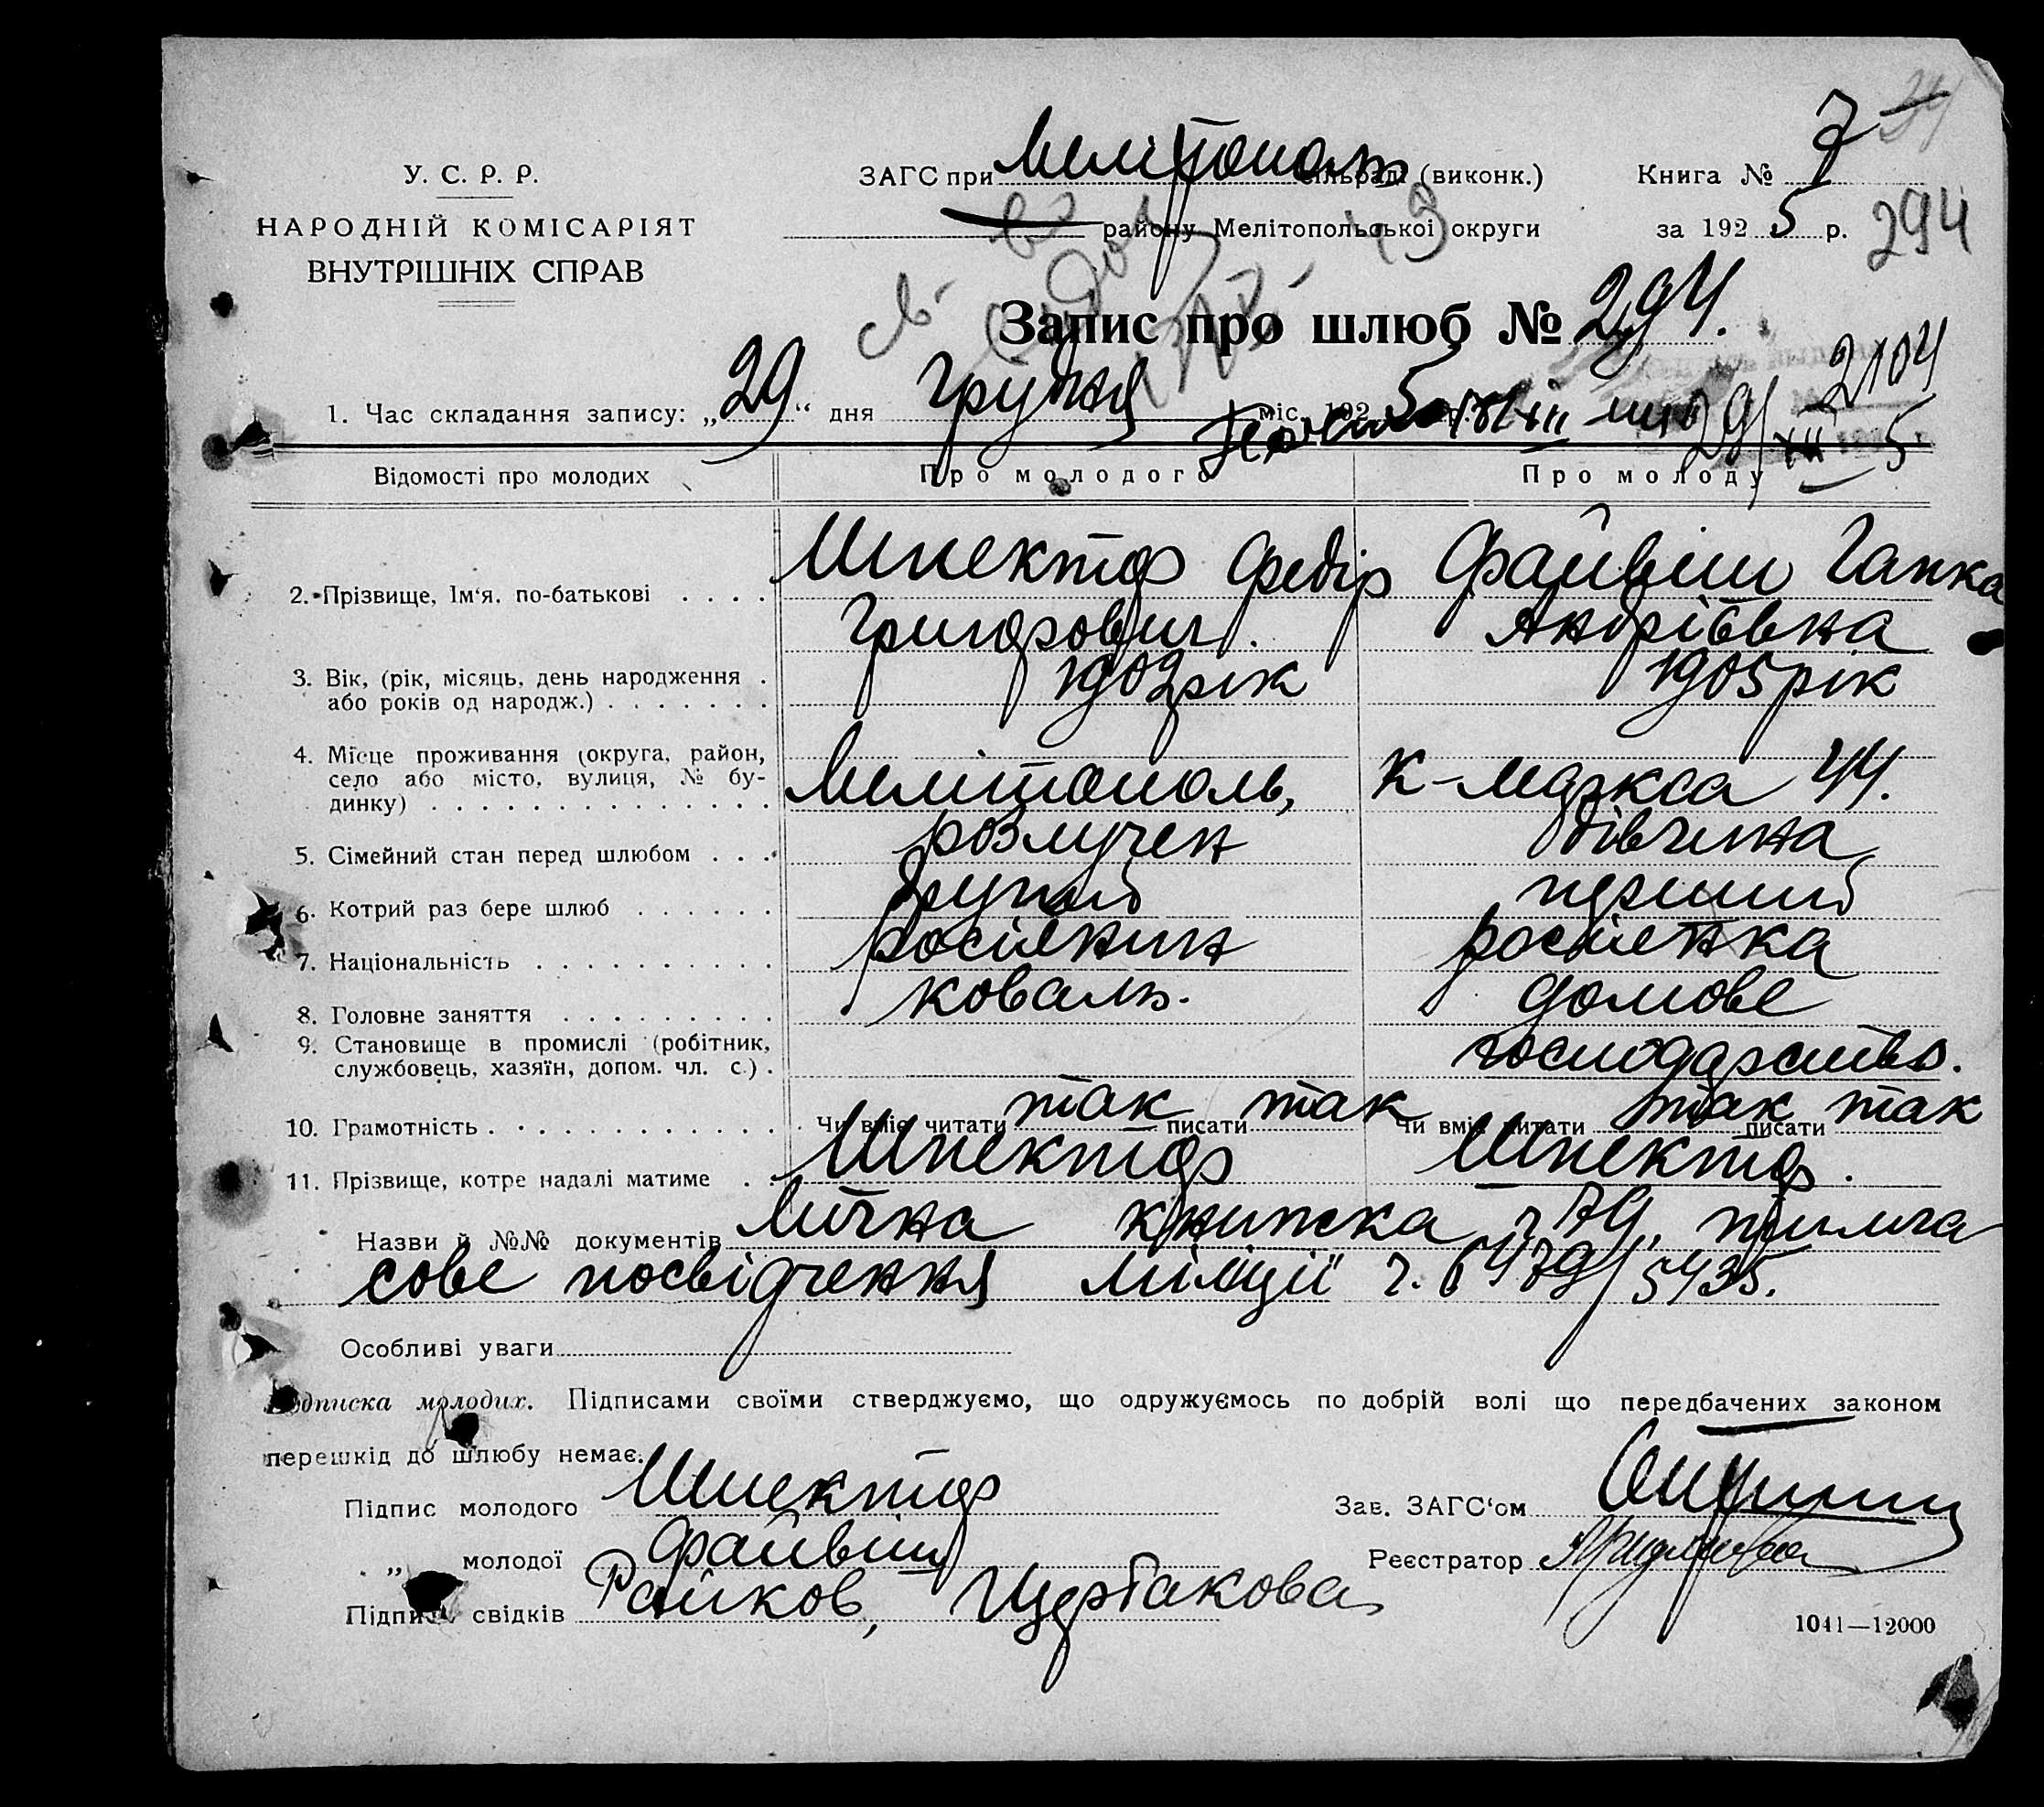 У. С. Р. Р.
НАРОДНІЙ КОМІСАРІЯТ
ВНУТРІШНІХ СПРАВ
ЗАГС при Мелітополь сільраді (виконк.)
району Мелітопольської округи
Книга № 7
за 1925 р.
294
Запис про шлюб № 294.
2104
1. Час складання запису: „29“ дня грудня міс. 1925
29/XII 5
Відомості про молодих Про молодого Про молоду
2. Прізвище, Ім‘я, по-батькові . . . . Шпектор Федір Файвіш Гапка
Григорович. Андріївна
3. Вік, (рік, місяць, день народження . 1902 рік 1905 рік
або років од народж.) . . . . . . .
4. Місце проживання (округа, район,
село або місто, вулиця, № бу- Мелітополь, К-Маркса 44.
динку) . . . . . . . . . . . . . .
5. Сімейний стан перед шлюбом . . . розлучен дівчина
6. Котрий раз бере шлюб . . . . . . другий перший
7. Національність . . . . . . . . . . росіянин росіянка
8. Головне заняття . . . . . . . . . коваль. домове
9. Становище в промислі (робітник, господарство.
службовець, хазяїн, допом. чл. с.) .
10. Грамотність . . . . . . . . . . . . Чи вміє читати так писати так Чи вміє читати так писати так
11. Прізвище, котре надалі матиме . . Шпектор Шпектор.
Назви й №№ документів Лична книжка ч. 79, тимча
сове посвідчення міліції ч. 6479/5435.
Особливі уваги
Подписка молодих. Підписами своїми стверджуємо, що одружуємось по добрій волі що передбачених законом
перешкід до шлюбу немає.
Підпис молодого Шпектор Зав. ЗАГС‘ом
„ молодої Файвіш Реєстратор
Підписи свідків Райков, Щербакова
1041—12000